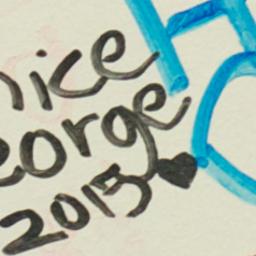 nice
eorge
2015